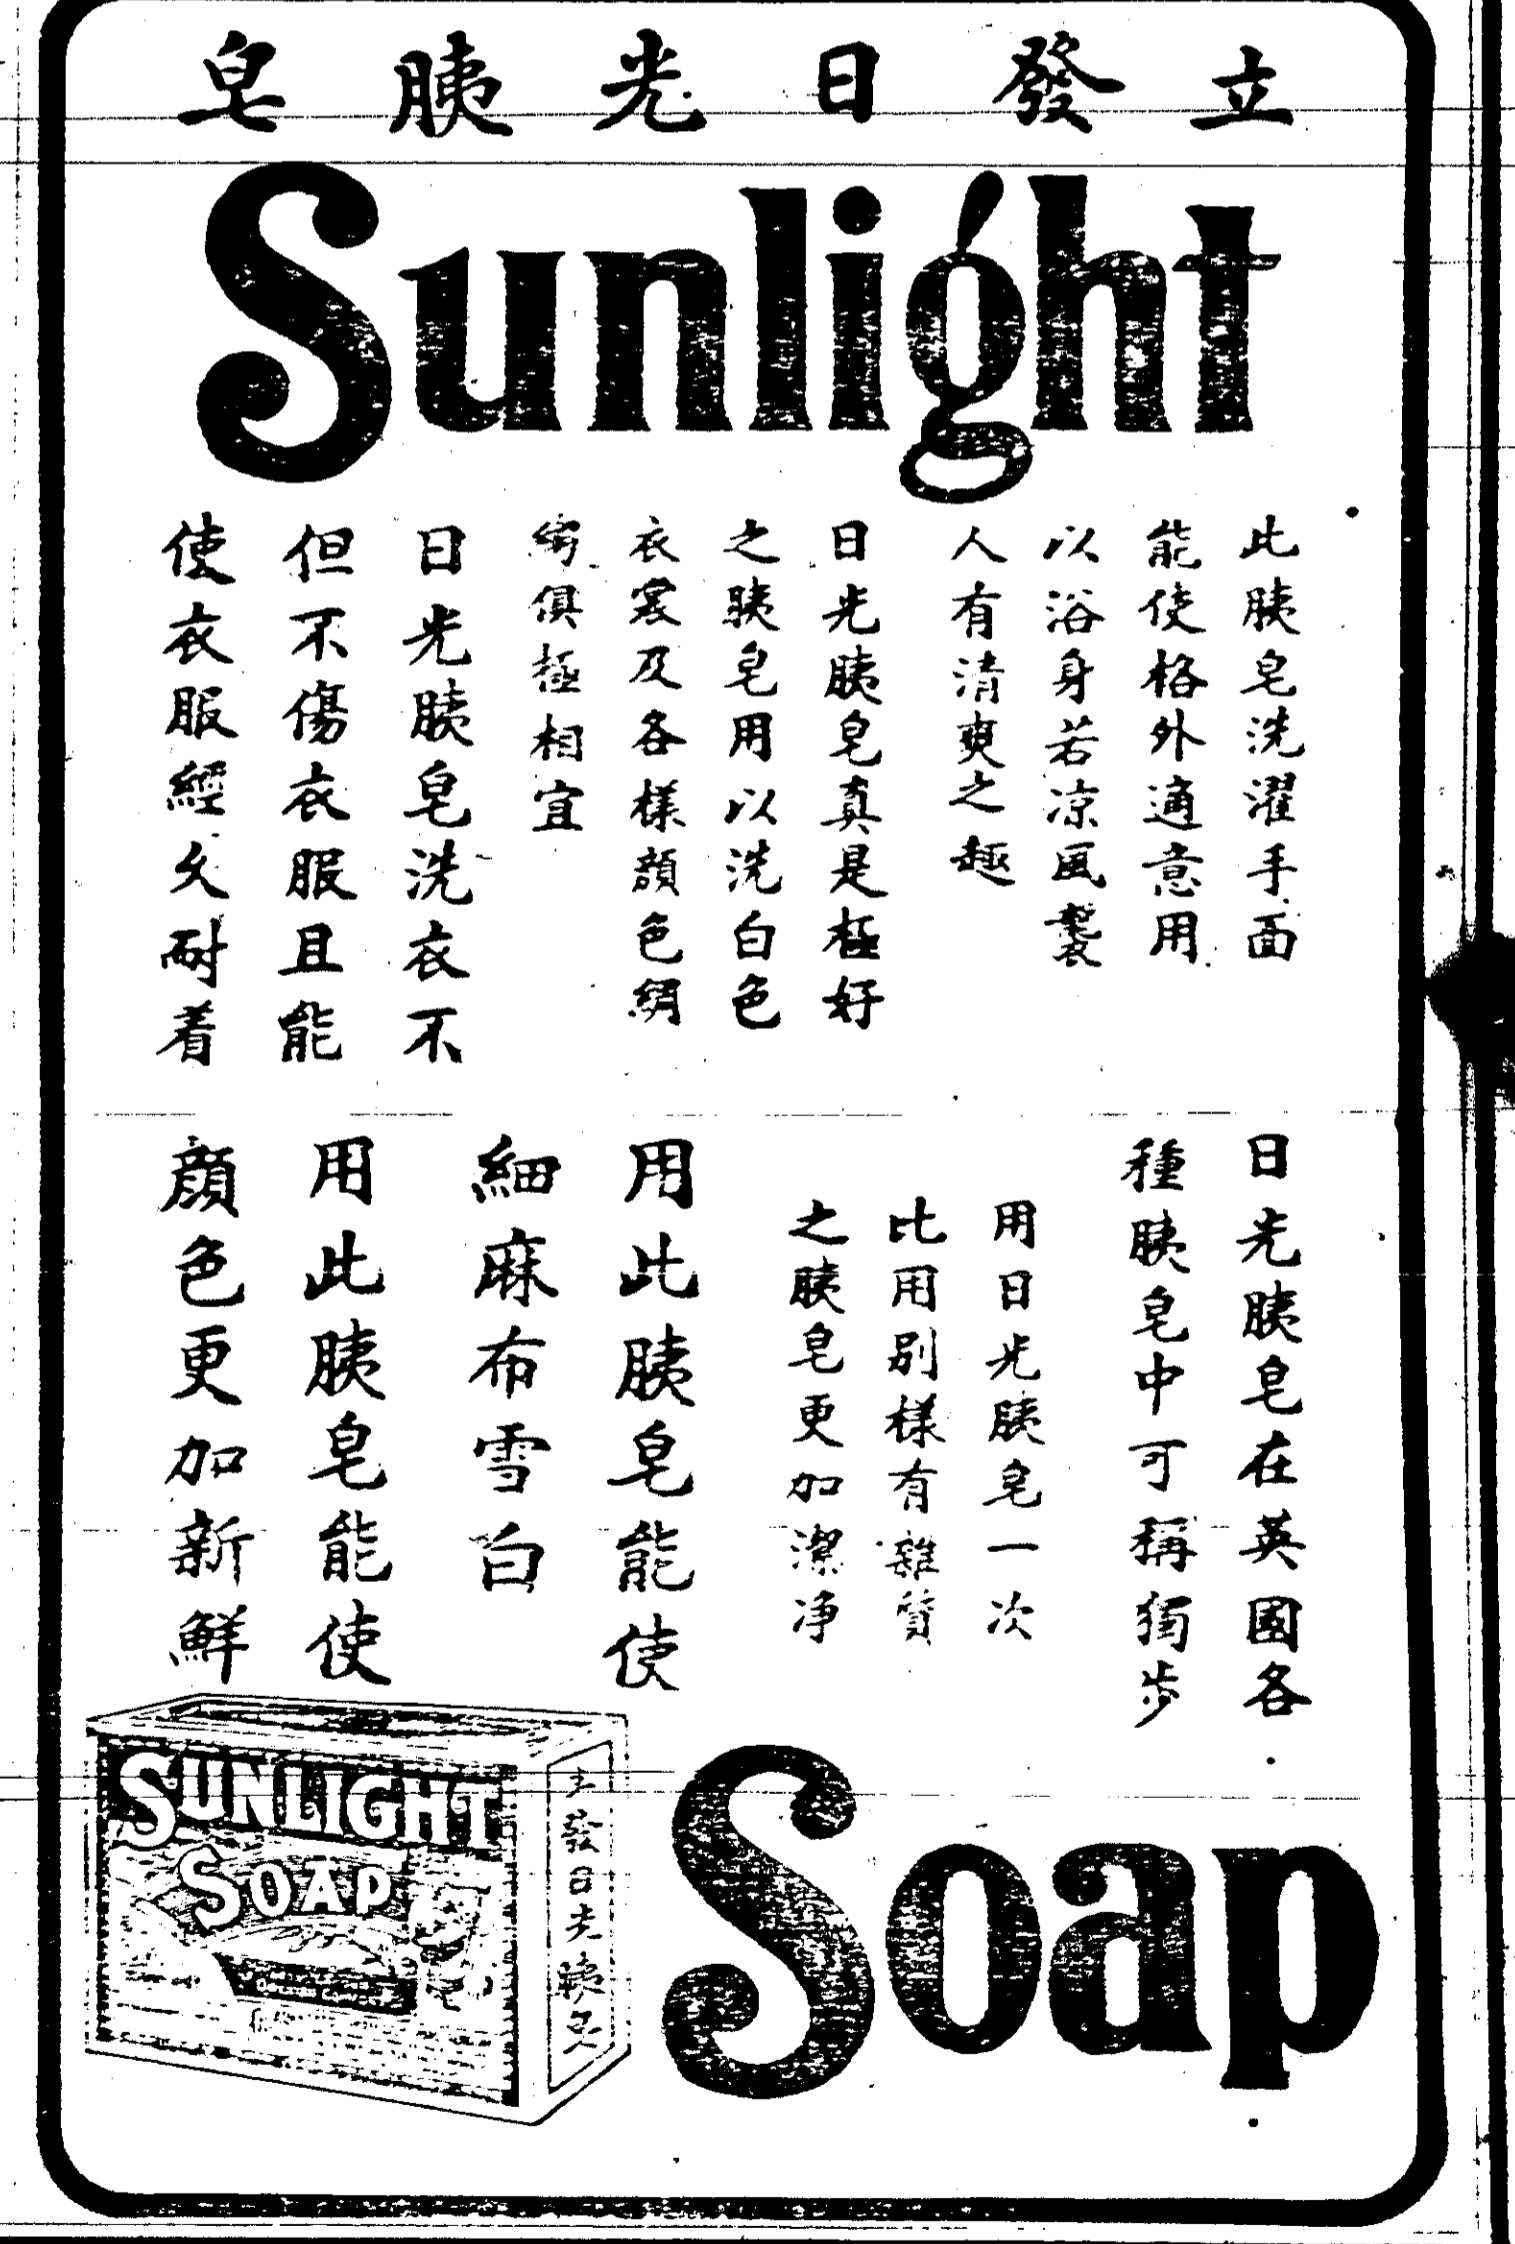 立發日光胰皂
Sunlight
此胰皂洗濯手面
能使格外適意用
以浴身若凉風襲
人有清爽之趣
日光胰皂真是極好
之胰皂用以洗白色
衣裳及各樣顔色綢
俱極相宜
日光胰皂洗衣不
但不傷衣服且能
使衣服經久耐着
日光胰皂在英國各
種胰皂中可稱獨步
用日光胰皂一次
比用別樣有雜質
之胰皂更加潔净
用此胰皂能使
細麻布雪白
用此胰皂能使
顔色更加新鮮
SUNLIGHT
SOAP
立發日光胰皂
Soap